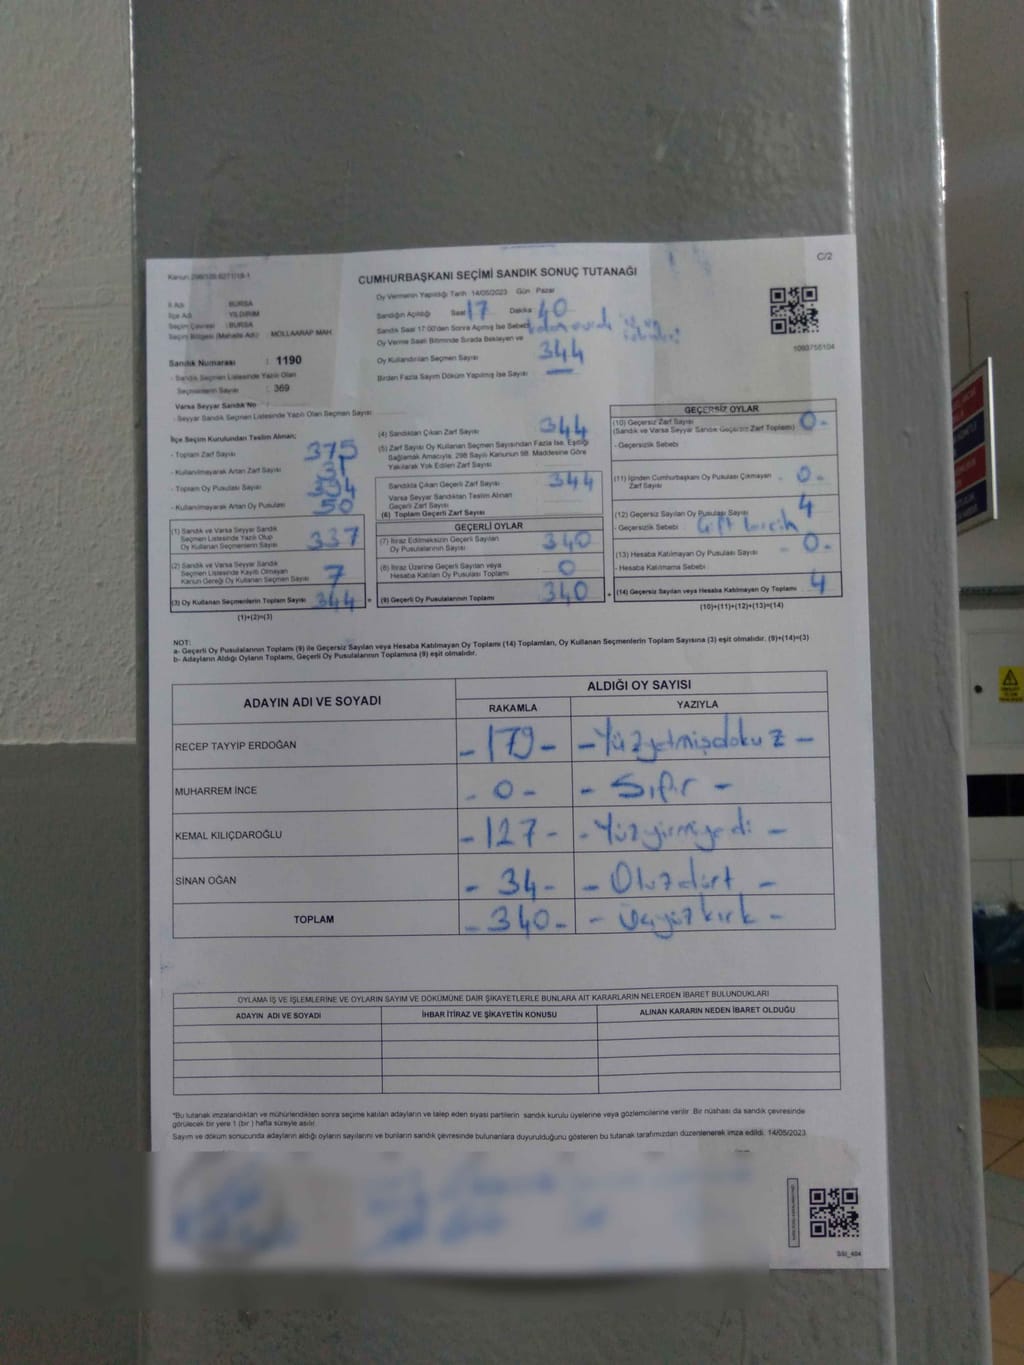 C/2
CUMHURBAŞKANI SEÇİMİ SANDIK SONUÇ TUTANAĞI
Oy Vermenin Yapıldığı Tarih 14/05/2023 Gün Pazar
İl Adı : BURSA
İlçe Adı : YILDIRIM
Seçim Çevresi : BURSA
Seçim Bölgesi (Mahalle Adı) : MOLLAARAP MAH.
Sandık Numarası : 1190
- Sandık Seçmen Listesinde Yazılı Olan
Seçmenlerin Sayısı : 369
Varsa Seyyar Sandık No
- Seyyar Sandık Seçmen Listesinde Yazılı Olan Seçmen Sayısı
Sandığın Açıldığı Saat 17 Dakika 40
Sandık Saat 17:00'den Sonra Açılmış İse Sebebi
Oy Verme Saati Bitiminde Sırada Bekleyen ve
Oy Kullandırılan Seçmen Sayısı 344
Birden Fazla Sayım Döküm Yapılmış İse Sayısı —
1093755104
İlçe Seçim Kurulundan Teslim Alınan;
- Toplam Zarf Sayısı 375
- Kullanılmayarak Artan Zarf Sayısı 31
- Toplam Oy Pusulası Sayısı
- Kullanılmayarak Artan Oy Pusulası 50
(1) Sandık ve Varsa Seyyar Sandık
Seçmen Listesinde Yazılı Olup
Oy Kullanan Seçmenlerin Sayısı 337
(2) Sandık ve Varsa Seyyar Sandık
Seçmen Listesinde Kayıtlı Olmayan
Kanun Gereği Oy Kullanan Seçmen Sayısı 7
(3) Oy Kullanan Seçmenlerin Toplam Sayısı 344 =
(1)+(2)=(3)
(4) Sandıktan Çıkan Zarf Sayısı 344
(5) Zarf Sayısı Oy Kullanan Seçmen Sayısından Fazla İse, Eşitliği
Sağlamak Amacıyla, 298 Sayılı Kanunun 98. Maddesine Göre
Yakılarak Yok Edilen Zarf Sayısı
Sandıkta Çıkan Geçerli Zarf Sayısı 344
Varsa Seyyar Sandıktan Teslim Alınan
Geçerli Zarf Sayısı
(6) Toplam Geçerli Zarf Sayısı
GEÇERLİ OYLAR
(7) İtiraz Edilmeksizin Geçerli Sayılan
Oy Pusulalarının Sayısı 340
(8) İtiraz Üzerine Geçerli Sayılan veya
Hesaba Katılan Oy Pusulası Toplamı 0
(9) Geçerli Oy Pusulalarının Toplamı 340 +
GEÇERSİZ OYLAR
(10) Geçersiz Zarf Sayısı 0-
(Sandık ve Varsa Seyyar Sandık Geçersiz Zarf Toplamı)
- Geçersizlik Sebebi
(11) İçinden Cumhurbaşkanı Oy Pusulası Çıkmayan
Zarf Sayısı - 0 -
(12) Geçersiz Sayılan Oy Pusulası Sayısı 4
- Geçersizlik Sebebi Çift tercih
(13) Hesaba Katılmayan Oy Pusulası Sayısı - 0 -
- Hesaba Katılmama Sebebi
(14) Geçersiz Sayılan veya Hesaba Katılmayan Oy Toplamı 4
(10)+(11)+(12)+(13)=(14)
NOT:
a- Geçerli Oy Pusulalarının Toplamı (9) ile Geçersiz Sayılan veya Hesaba Katılmayan Oy Toplamı (14) Toplamları, Oy Kullanan Seçmenlerin Toplam Sayısına (3) eşit olmalıdır. (9)+(14)=(3)
b- Adayların Aldığı Oyların Toplamı, Geçerli Oy Pusulalarının Toplamına (9) eşit olmalıdır.
ADAYIN ADI VE SOYADI ALDIĞI OY SAYISI
RAKAMLA YAZIYLA
RECEP TAYYİP ERDOĞAN - 179 - - Yüzyetmişdokuz -
MUHARREM İNCE - 0 - - Sıfır -
KEMAL KILIÇDAROĞLU - 127 - - Yüzyirmiyedi -
SİNAN OĞAN - 34 - - Otuzdört -
TOPLAM - 340 - - Üçyüzkırk -
OYLAMA İŞ VE İŞLEMLERİNE VE OYLARIN SAYIM VE DÖKÜMÜNE DAİR ŞİKAYETLERLE BUNLARA AİT KARARLARIN NELERDEN İBARET BULUNDUKLARI
ADAYIN ADI VE SOYADI İHBAR İTİRAZ VE ŞİKAYETİN KONUSU ALINAN KARARIN NEDEN İBARET OLDUĞU
*Bu tutanak imzalandıktan ve mühürlendikten sonra seçime katılan adayların ve talep eden siyasi partilerin sandık kurulu üyelerine veya gözlemcilerine verilir. Bir nüshası da sandık çevresinde
görülecek bir yere 1 (bir) hafta süreyle asılır.
Sayım ve döküm sonucunda adayların aldığı oyların sayılarını ve bunların sandık çevresinde bulunanlara duyurulduğunu gösteren bu tutanak tarafımızdan düzenlenerek imza edildi. 14/05/2023
SSI_404